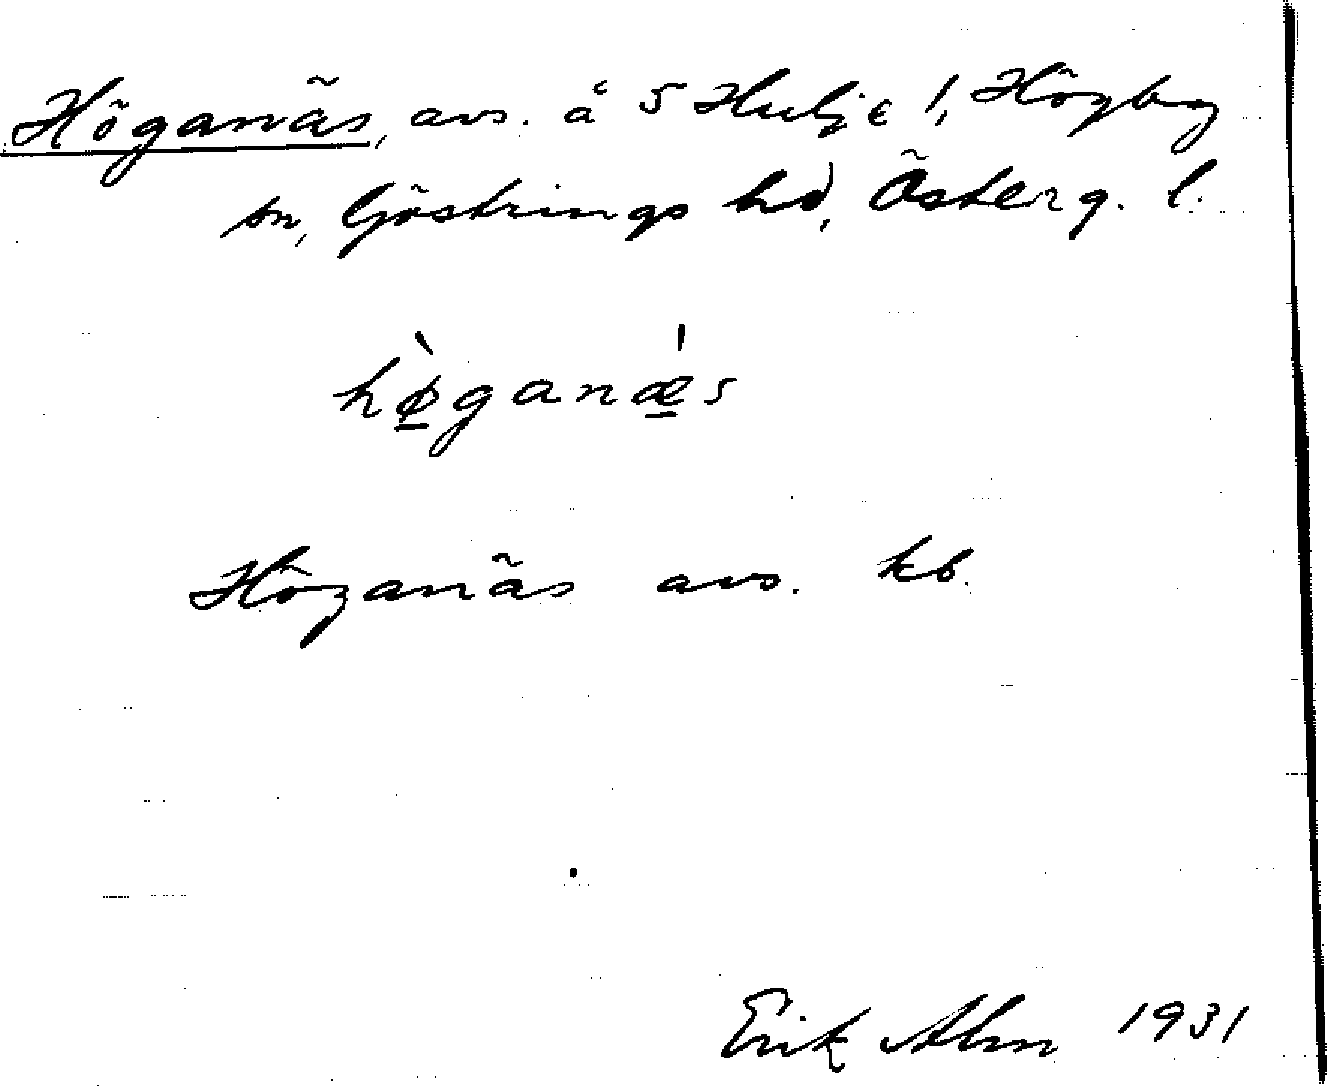 Höganäs, avs. å 5 Hulje 1, Högby
sn, Göstrings hd, Österg. l.
hø̀ganǽs
Höganäs avs. kb.
Erik Alm 1931